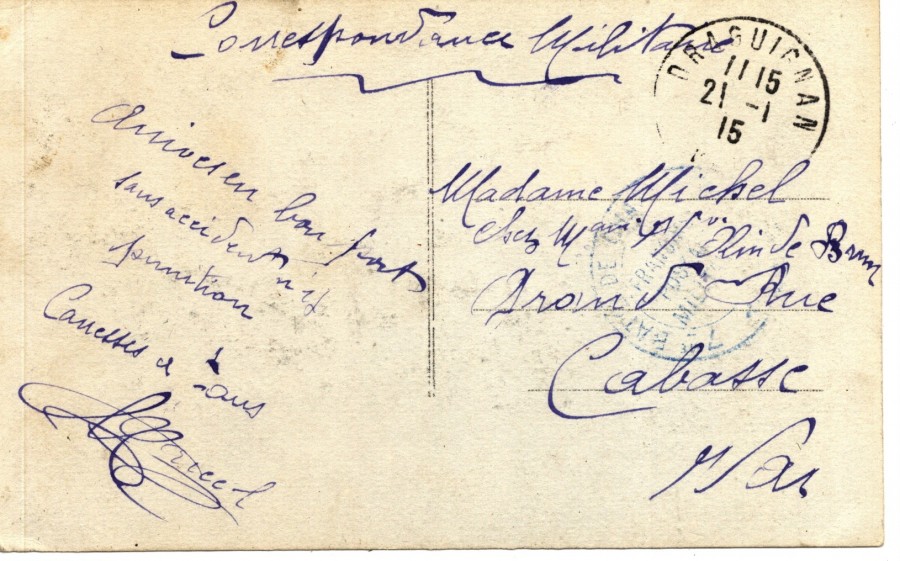 Correspondance Militaire
DRAGUIGNAN
11 15
21 -1
15
Arrivés en bon port
sans accident ni
punition
Caresses à tous
Madame Michel
Chez M
Grand Rue
Cabasse
Var